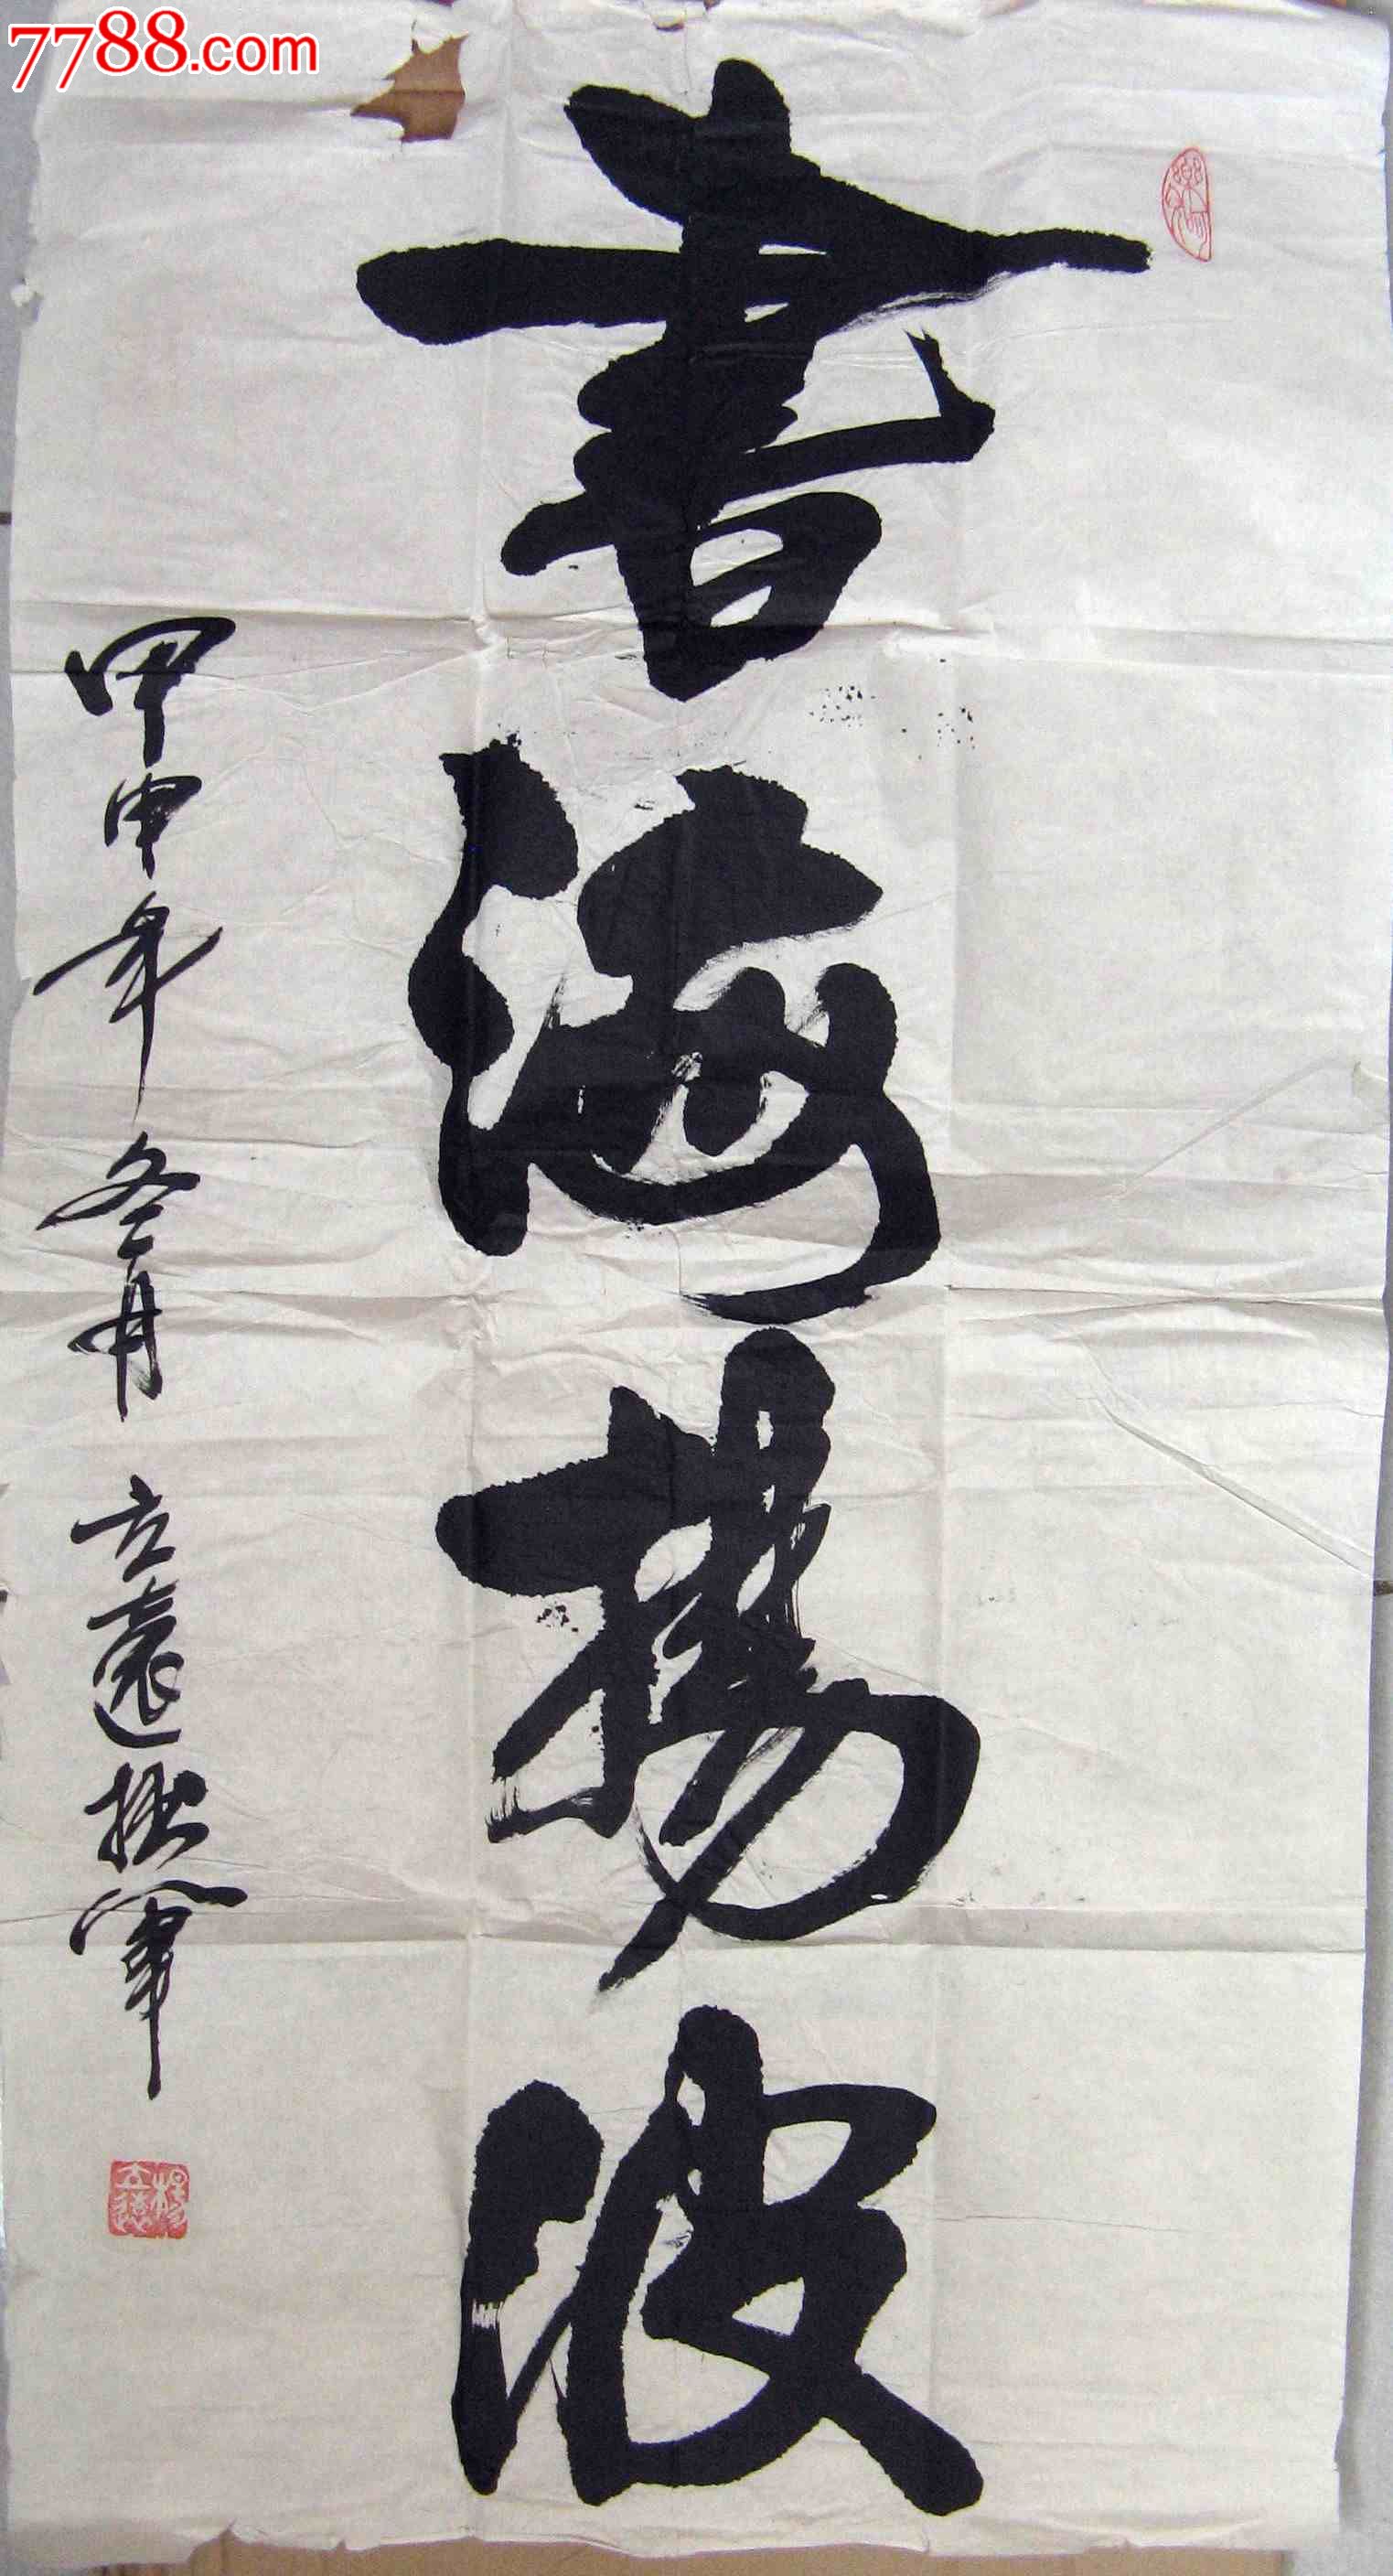 7788.com
書海揚波
甲申年冬月立遠拙筆